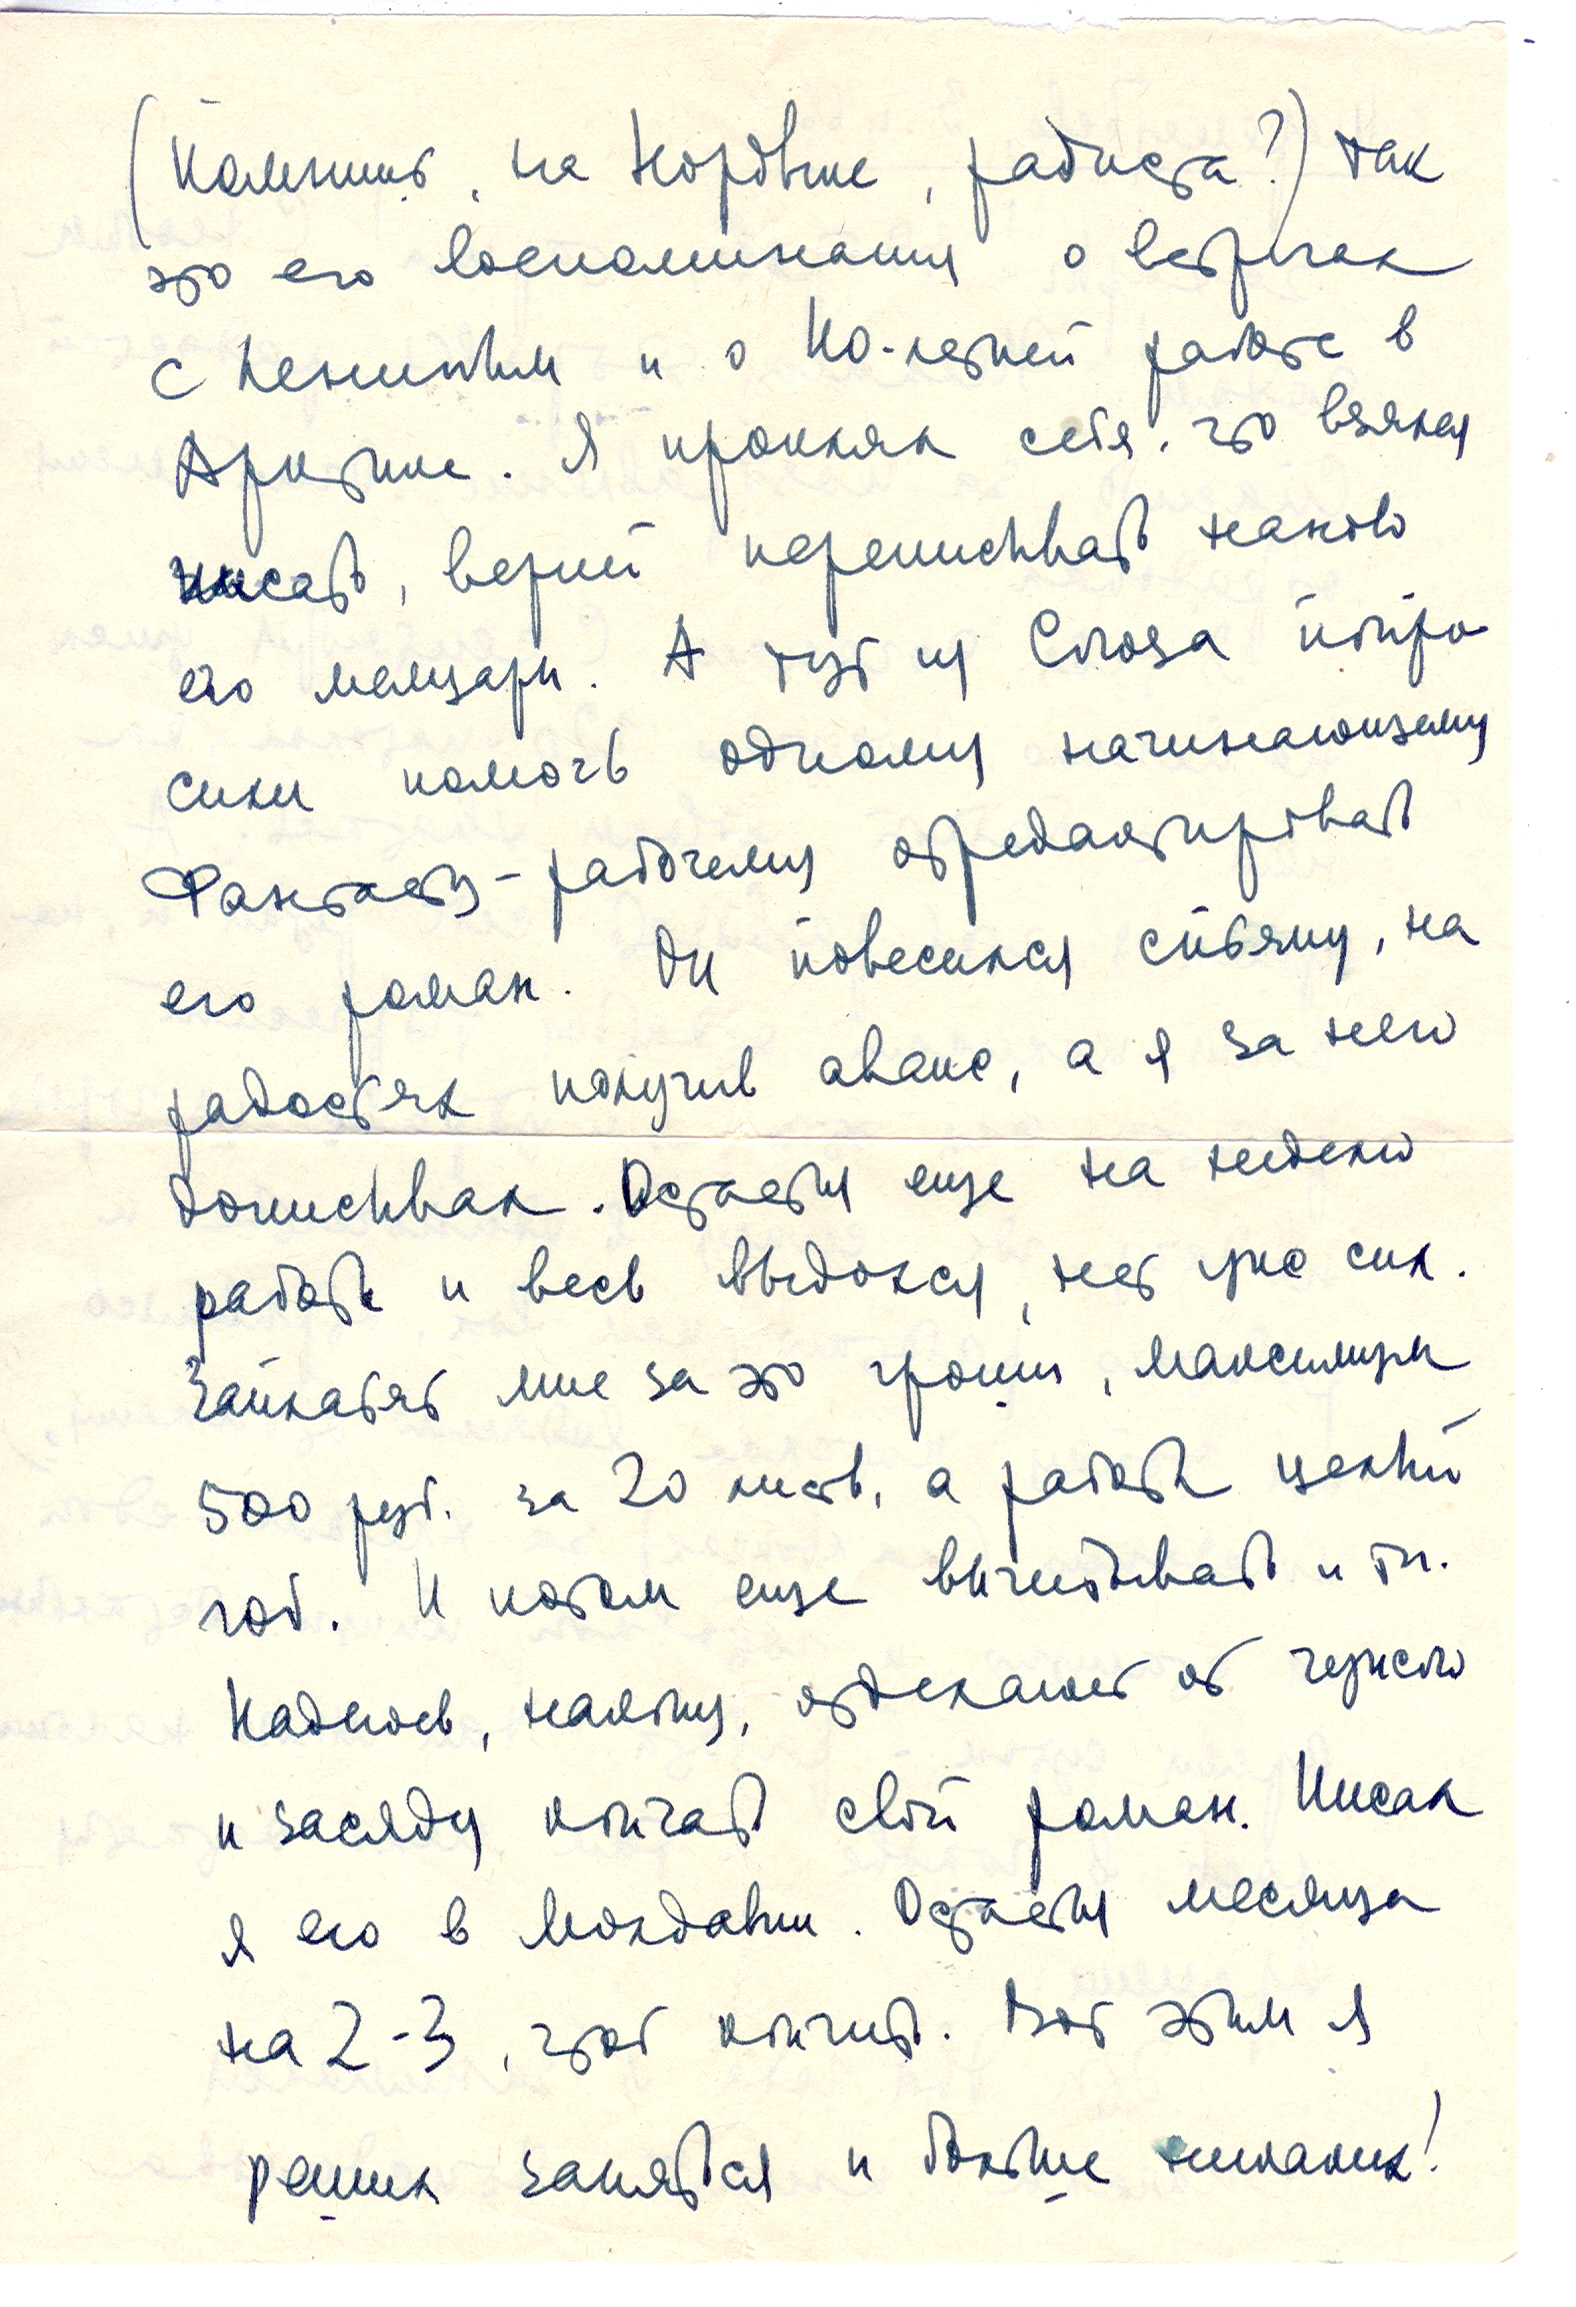 (Помнишь, на Нордвике, радиста?) Так
это его воспоминания о встречах
с Лениным и о 40-летней работе в
Арктике. Я проклял себя, что взялся
писать, верней переписывать наново
его мемуары. А тут из Союза попро
сили помочь одному начинающему
фантасту-рабочему отредактировать
его роман. Он повесился спьяну, на
радостях получив аванс, а я за него
дописывал. Остается еще на неделю
работы и весь выдохся, нет уже сил.
Заплатят мне за это гроши, максимум
500 руб. за 20 листов, а работы целый
год. И потом еще вычитывать и тп.
Надеюсь, налягу, отделаюсь от чужого
и засяду кончать свой роман. Писал
я его в Молдавии. Остается месяца
на 2-3, чтоб кончить. Вот этим я
решил заняться и больше никаких!